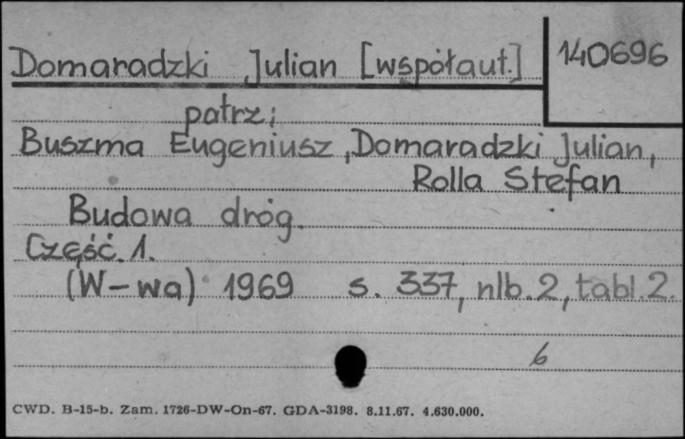 Domaradzki Julian [współaut.] 140696
patrz:
Buszma Eugeniusz, Domaradzki Julian,
Rolla Stefan
Budowa dróg.
Część. 1.
(W-wa) 1969 s. 337, nlb. 2, tabl. 2.
6
CWD. B-15-b. Zam. 1726-DW-On-67. GDA-3198. 8.11.67. 4.630.000.